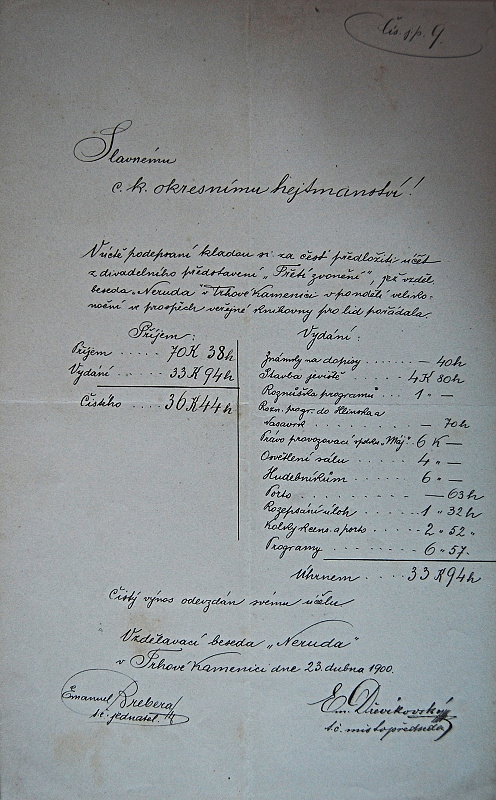 Čís. sp. 9.
Slavnému
c. k. okresnímu hejtmanství!
V úctě podepsaní kladou si za čest předložiti účet
z divadelního představení „Třetí zvonění“, jež vzděl.
beseda „Neruda“ v Trhové Kamenici v pondělí veliko-
noční ve prospěch veřejné knihovny pro lid pořádala.
Příjem:
Příjem ..... 70 K 38 h
Vydání .... 33 K 94 h
Čistého ..... 36 K 44 h
Vydání:
Známky na dopisy ..... — 40 h
Stavba jeviště ..... 4 K 80 h
Roznůška programů .. 1 „ —
Rozn. progr. do Hlinska a
Nasavrk ..... — 70 h
Právo provozovací spolku „Máj“ 6 K —
Osvětlení sálu ..... 4 „ —
Hudebníkům ..... 6 „ —
Porto ..... — 63 h
Rozepsání úloh ..... 1 „ 32 h
Kolky a porto ..... 2 „ 52 „
Programy ..... 6 „ 57.
Úhrnem .... 33 K 94 h
Čistý výnos odevzdán svému účelu
Vzdělavací beseda „Neruda“
v Trhové Kamenici dne 23. dubna 1900.
Emanuel Brebera
t. č. jednatel
Em.
t. č. místopředseda